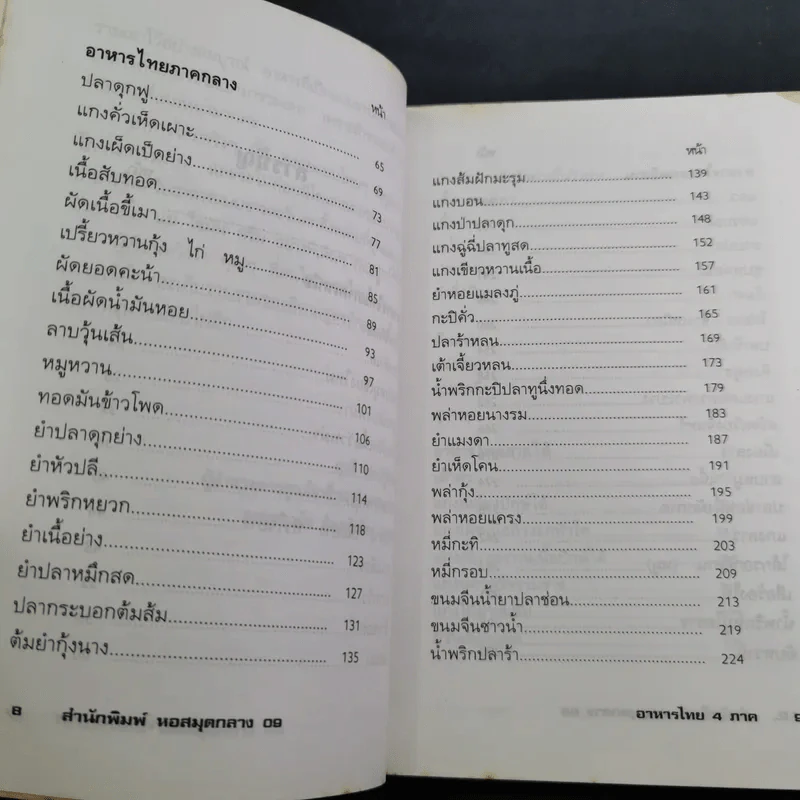 อาหารไทยภาคกลาง
หน้า
ปลาดุกฟู 65
แกงคั่วเห็ดเผาะ 69
แกงเผ็ดเป็ดย่าง 73
เนื้อสับทอด 77
ผัดเนื้อขี้เมา 81
เปรี้ยวหวานกุ้ง ไก่ หมู 85
ผัดยอดคะน้า 89
เนื้อผัดน้ำมันหอย 93
ลาบวุ้นเส้น 97
หมูหวาน 101
ทอดมันข้าวโพด 106
ยำปลาดุกย่าง 110
ยำหัวปลี 114
ยำพริกหยวก 118
ยำเนื้อย่าง 123
ยำปลาหมึกสด 127
ปลากระบอกต้มส้ม 131
ต้มยำกุ้งนาง 135
8 สำนักพิมพ์ หอสมุดกลาง 09
หน้า
แกงส้มฝักมะรุม 139
แกงบอน 143
แกงป่าปลาดุก 148
แกงฉู่ฉี่ปลาทูสด 152
แกงเขียวหวานเนื้อ 157
ยำหอยแมลงภู่ 161
กะปิคั่ว 165
ปลาร้าหลน 169
เต้าเจี้ยวหลน 173
น้ำพริกกะปิปลาทูนึ่งทอด 179
พล่าหอยนางรม 183
ยำแมงดา 187
ยำเห็ดโคน 191
พล่ากุ้ง 195
พล่าหอยแครง 199
หมี่กะทิ 203
หมี่กรอบ 209
ขนมจีนน้ำยาปลาช่อน 213
ขนมจีนซาวน้ำ 219
น้ำพริกปลาร้า 224
อาหารไทย 4 ภาค 9